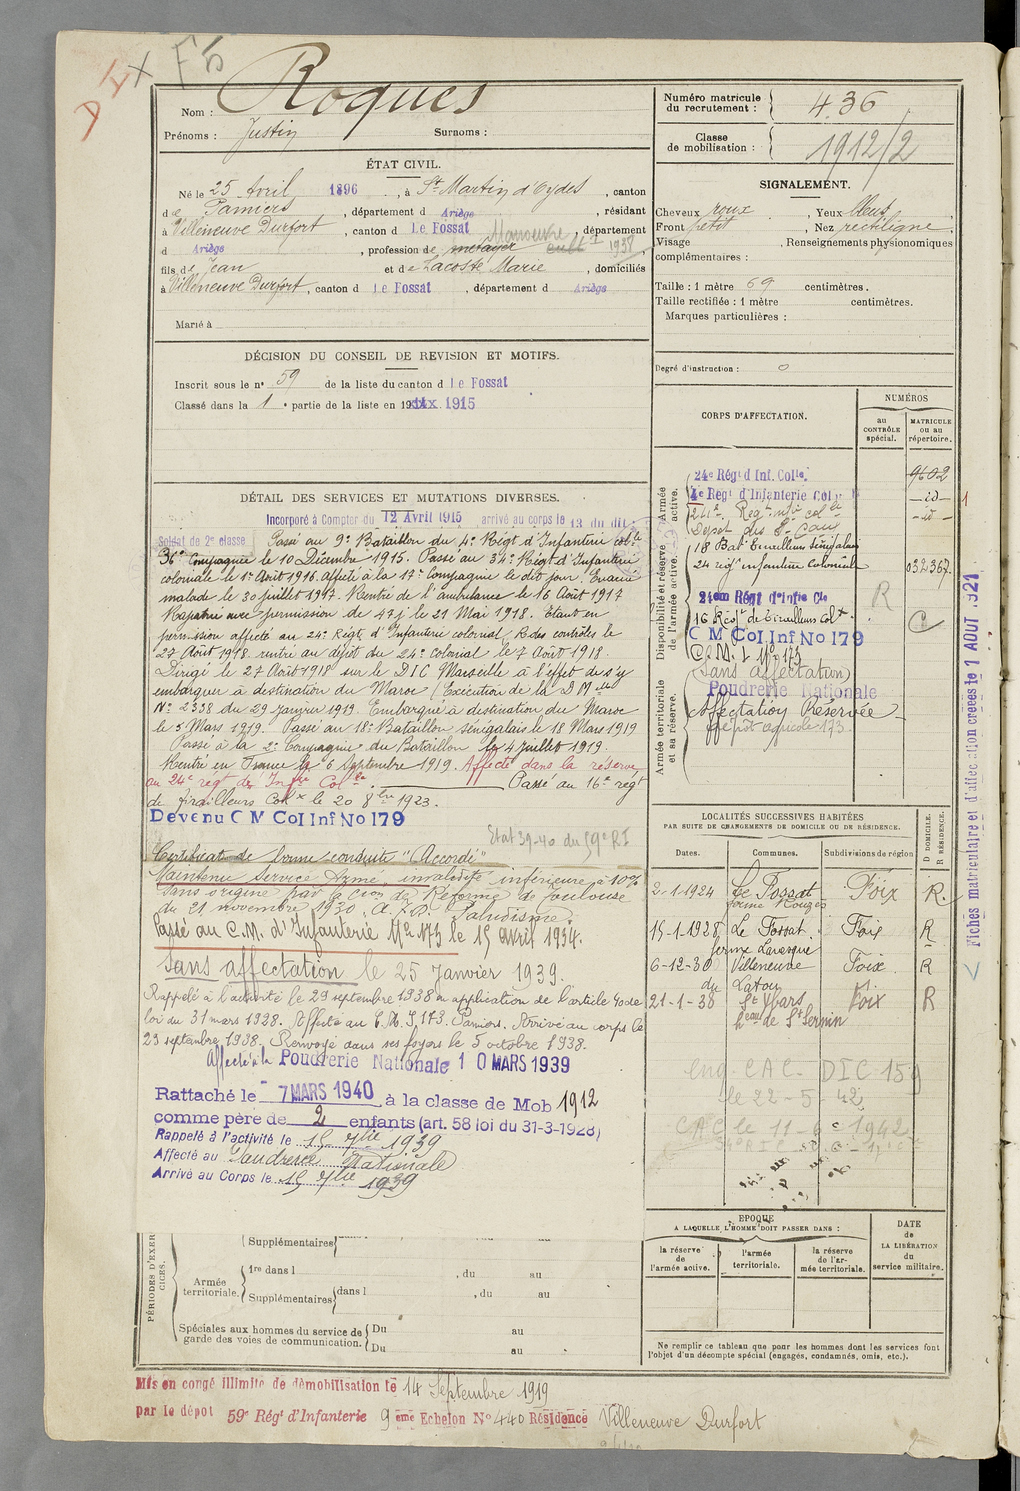 F5
Nom : Roques
Prénoms : Justin Surnoms :
ÉTAT CIVIL.
Né le 25 Avril 1896, à St Martin d'Oydes, canton
de Pamiers, département d Ariège, résidant
à Villeneuve Durfort, canton d Le Fossat, département
d Ariège, profession de métayer cultr 1938
fils de Jean et de Lacoste Marie, domiciliés
à Villeneuve Durfort, canton d Le Fossat, département d Ariège
Marié à
DÉCISION DU CONSEIL DE REVISION ET MOTIFS.
Inscrit sous le n° 59 de la liste du canton d Le Fossat
Classé dans la 1e partie de la liste en 1915
DÉTAIL DES SERVICES ET MUTATIONS DIVERSES.
Incorporé à Compter du 12 Avril 1915 arrivé au corps le 13 du dit
Soldat de 2e classe Passé au 9e Bataillon du 4e Régt d'Infanterie colle
36e Compagnie le 10 Décembre 1915. Passé au 34e Régt d'Infanterie
coloniale le 1er Août 1916. Affecté à la 17e Compagnie le dit jour. Evacué
malade le 30 juillet 1917. Rentré de l'ambulance le 16 Août 1917
Rapatrié avec permission de 47j le 21 Mai 1918. Etant en
permission affecté au 24e Régt d'Infanterie colonial, R des contrôles le
27 Août 1918. rentré au dépôt du 24e Colonial le 7 Août 1918.
Dirigé le 27 Août 1918 sur le DIC Marseille à l'effet de s'y
embarquer à destination du Maroc (Exécution de la D M elle
N° 2338 du 29 janvier 1919. Embarqué à destination du Maroc
le 5 Mars 1919. Passé au 18e Bataillon sénégalais le 18 Mars 1919
Passé à la 2e Compagnie du Bataillon le 4 juillet 1919.
Rentré en France le 6 Septembre 1919. Affecté dans la réserve
au 24e régt de Infrie Colle. Passé au 16e régt
de tirailleurs Colx le 20 8bre 1923.
Devenu C M Col Inf No 179
Etat 39-40 du 59e RI
Certificat de bonne conduite "Accordé"
Maintenu Service Armé, invalidité inférieure à 10%
sans origine par la Cion de Réforme de Toulouse
du 21 novembre 1930. Paludisme.
Passé au C.M. d'Infanterie N° 173 le 15 avril 1934.
Sans affectation le 25 Janvier 1939.
Rappelé à l'activité le 29 septembre 1938 en application de l'article 40 de
loi du 31 mars 1928. Affecté au C.M.I. 173. Pamiers. Arrivé au corps le
29 septembre 1938. Renvoyé dans ses foyers le 5 octobre 1938.
Affecté à la Poudrerie Nationale 10 MARS 1939
Rattaché le 7 MARS 1940 à la classe de Mob 1912
comme père de 2 enfants (art. 58 loi du 31-3-1928)
Rappelé à l'activité le 15 7bre 1939
Affecté au Poudrerie Nationale
Arrivé au Corps le 15 7bre 1939
PÉRIODES D'EXERCICES.
Supplémentaires
Armée territoriale.
1re dans l , du au
Supplémentaires dans l , du au
Spéciales aux hommes du service de garde des voies de communication.
Du au
Du au
Mis en congé illimité de démobilisation le 14 Septembre 1919
par le dépôt 59e Régt d'Infanterie 9 ème Echelon N° 440 Résidence Villeneuve Durfort
Numéro matricule du recrutement : 436
Classe de mobilisation : 1912/2
SIGNALEMENT.
Cheveux roux, Yeux bleus
Front petit, Nez rectiligne
Visage , Renseignements physionomiques
complémentaires :
Taille : 1 mètre 69 centimètres.
Taille rectifiée : 1 mètre centimètres.
Marques particulières :
Degré d'instruction : 0
CORPS D'AFFECTATION.
NUMÉROS
au CONTRÔLE spécial.
MATRICULE ou au répertoire.
Armée active.
24e Régt d Inf. Colle. 9602
4e Regt d'Infanterie Col -id-
34e Regt infie colle -id-
18 Bat Tirailleurs Sénégalais
Disponibilité et réserve de l'armée active.
24 régt infanterie Coloniale 032367
24em Régt d'Infie Cle R
16 Régt de Tirailleurs Colx C
C M Col Inf No 179
C.M.I N° 173
(Sans affectation)
Armée territoriale et sa réserve.
Poudrerie Nationale
Affectation Réservée
dépôt agricole 173.
LOCALITÉS SUCCESSIVES HABITÉES
PAR SUITE DE CHANGEMENTS DE DOMICILE OU DE RÉSIDENCE.
Dates. Communes. Subdivisions de région D DOMICILE. R RÉSIDENCE.
2-1-1924 Le Fossat Foix R.
ferme Rouges
15-1-1928 Le Fossat Foix R
ferme
6-12-30 Villeneuve Foix R
du Latou
21-1-38 St Ybars Foix R
heau de St Sernin
CAC. DIC 159
le 22-5-42
CAC le 11-6 1942
EPOQUE
A LAQUELLE L'HOMME DOIT PASSER DANS :
la réserve de l'armée active.
l'armée territoriale.
la réserve de l'armée territoriale.
DATE de LA LIBÉRATION du service militaire.
Ne remplir ce tableau que pour les hommes dont les services font
l'objet d'un décompte spécial (engagés, condamnés, omis, etc.).
Fiches matriculaire et d'affectation créées le 1 AOUT 1921